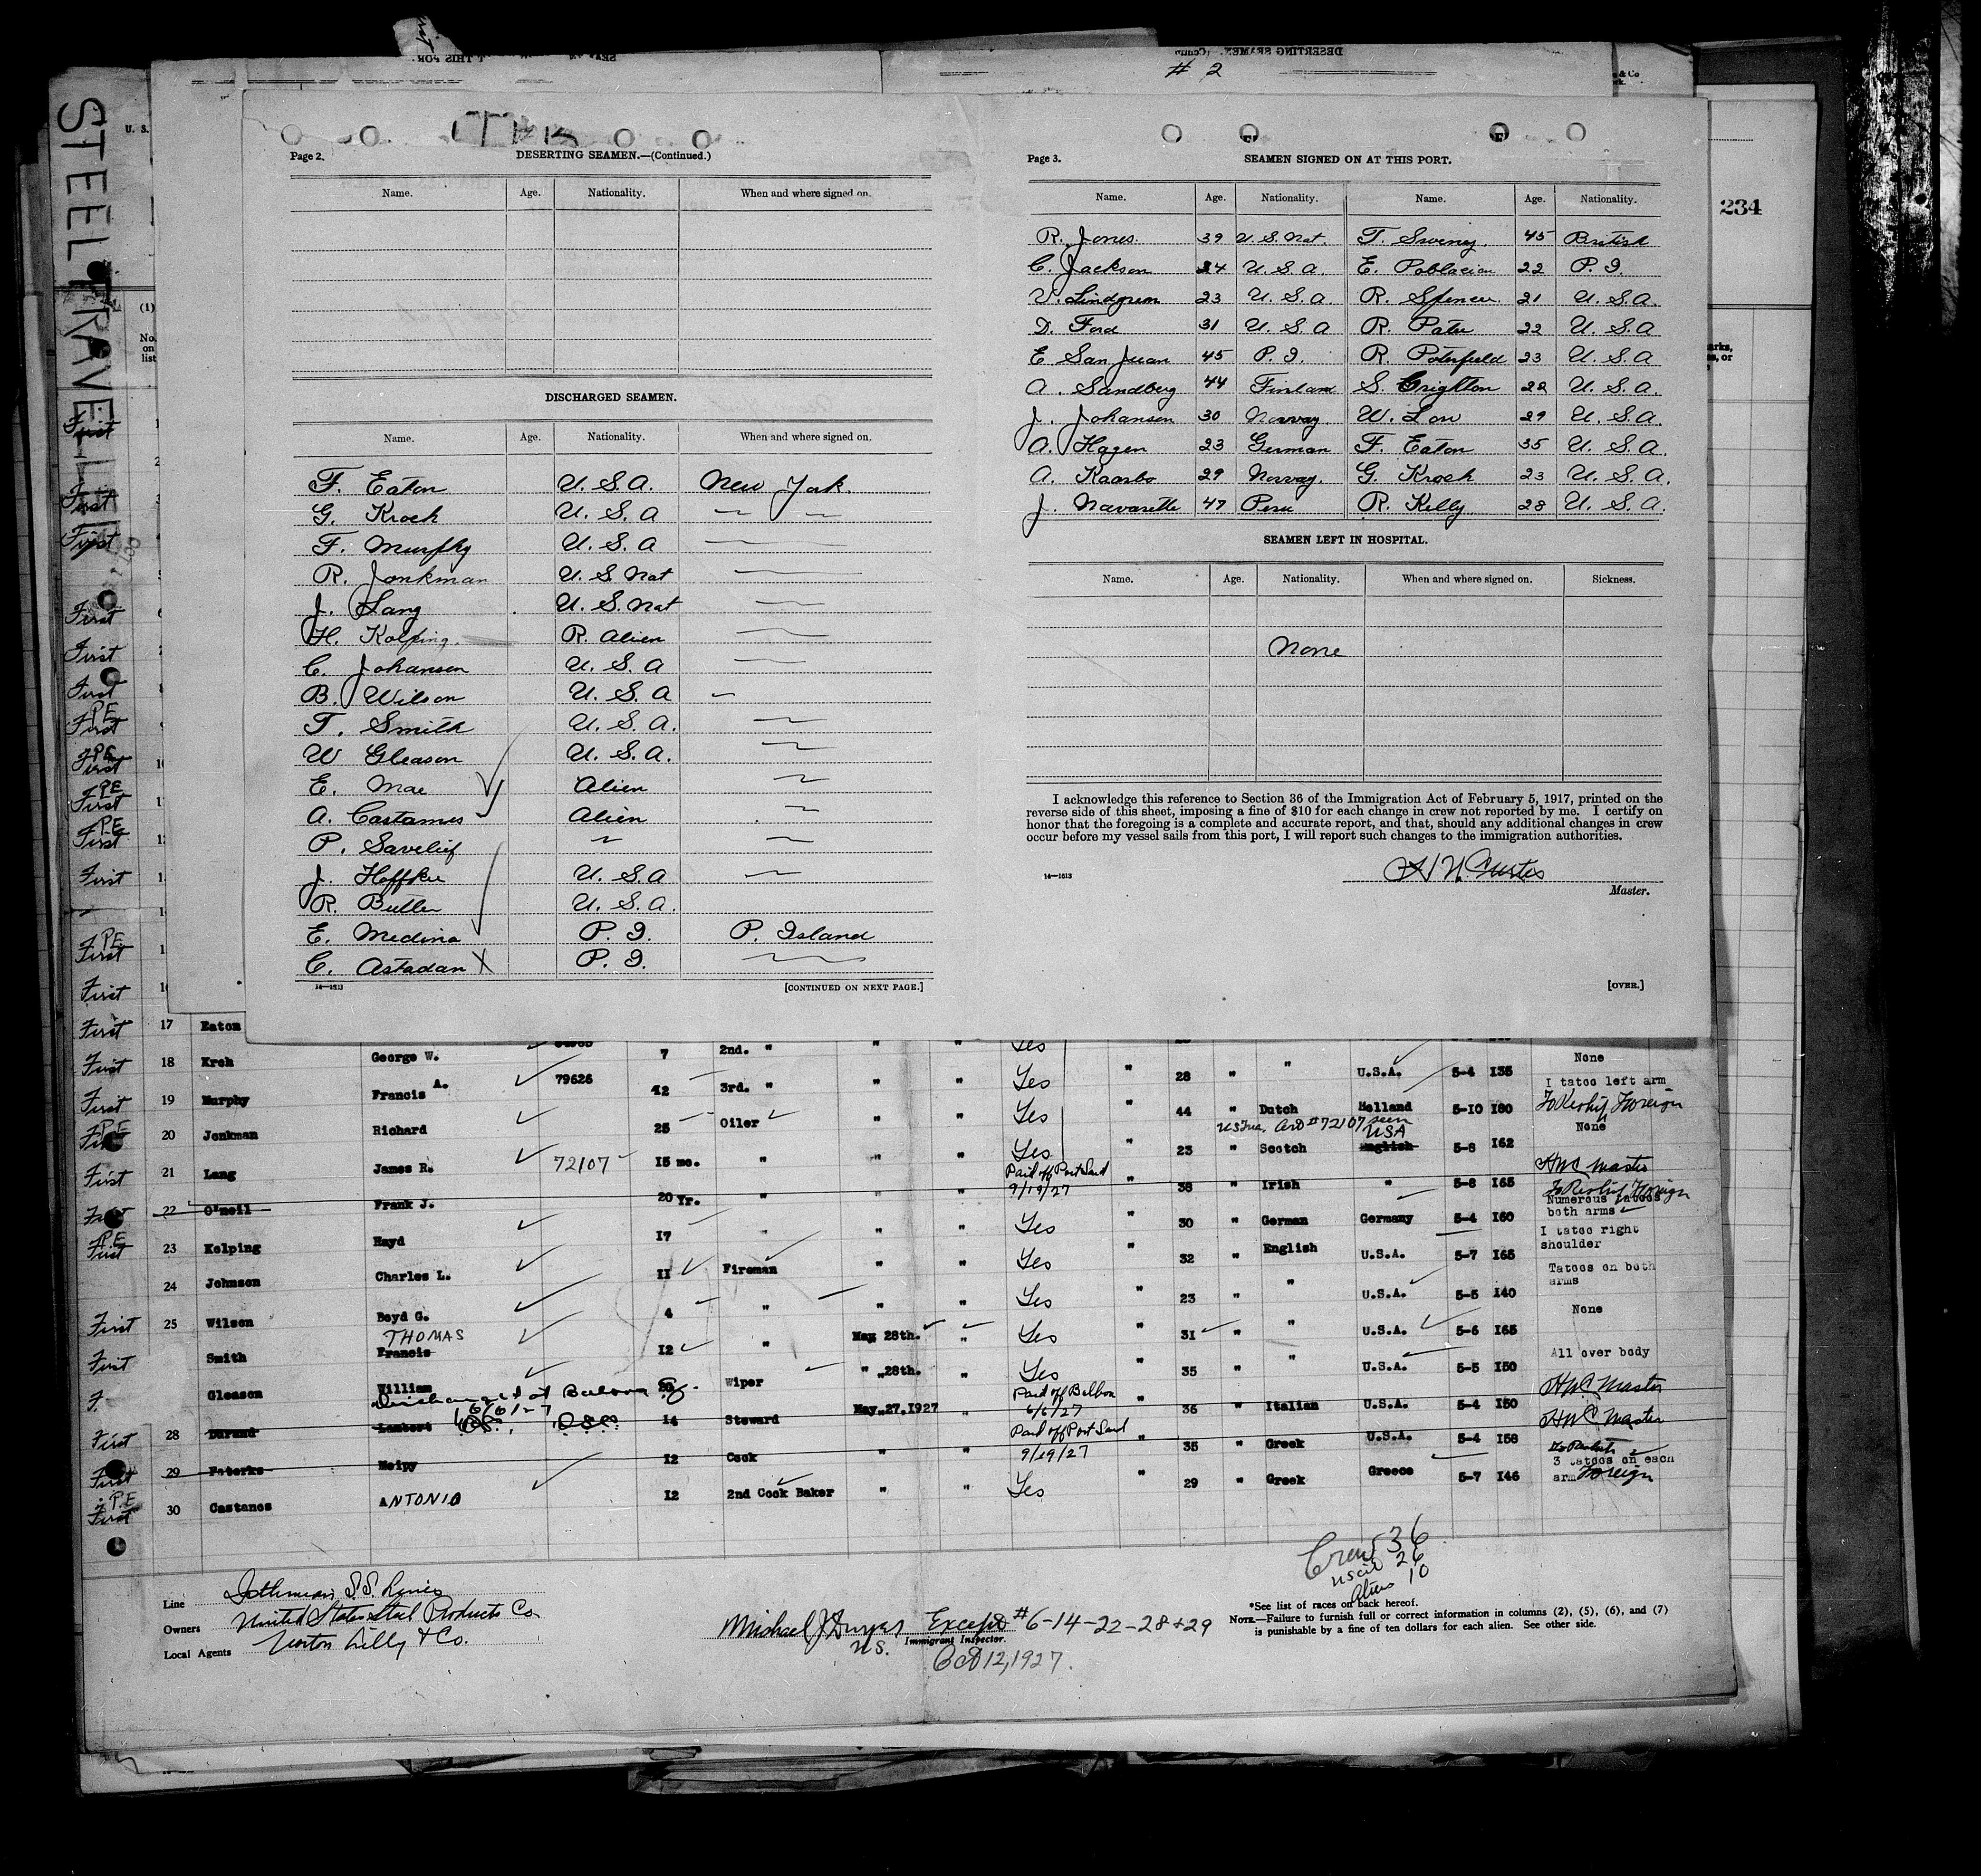 DESERTING SEAMEN.
# 2
& Co
STEEL TRAVELLER
U. S.
234
Page 2.
DESERTING SEAMEN.—(Continued.)
Name. Age. Nationality. When and where signed on.
DISCHARGED SEAMEN.
Name. Age. Nationality. When and where signed on.
F. Eaton U. S. A. New York.
G. Kroch U. S. A
F. Murphy U. S. A
R. Jonkman U. S. Nat
J. Lang U. S. Nat
H. Kolping. R. Alien
C. Johansen U. S. A
B. Wilson U. S. A
T. Smith U. S. A.
W Gleason U. S. A.
E. Mae Alien
A. Castames Alien
P. Savelief
J. Hoffker U. S. A
R. Butler U. S. A.
E. Medina P. I. P. Island
C. Astadan X P. I.
14—1613
[CONTINUED ON NEXT PAGE.]
Page 3.
SEAMEN SIGNED ON AT THIS PORT.
Name. Age. Nationality. Name. Age. Nationality.
R. Jones. 39 U. S. Nat. T. Swiney 45 British
C. Jackson 24 U. S. A. E. Poblacion 22 P. I.
V. Lindgren 23 U. S. A R. Spencer 21 U. S. A.
D. Ford 31 U. S. A R. Pater 22 U. S. A
E San Juan 45 P. I. R. Poterfield 23 U. S. A
A. Sandberg 44 Finland S. Crighton 22 U. S. A.
J. Johansen 30 Norway W. Low 29 U. S. A.
A. Hagen 23 German F. Eaton 35 U. S. A.
A. Kaarbo 29 Norway. G. Kroch 23 U. S. A.
J. Navarette 47 Peru R. Kelly 28 U. S. A.
SEAMEN LEFT IN HOSPITAL.
Name. Age. Nationality. When and where signed on. Sickness.
None
I acknowledge this reference to Section 36 of the Immigration Act of February 5, 1917, printed on the
reverse side of this sheet, imposing a fine of $10 for each change in crew not reported by me. I certify on
honor that the foregoing is a complete and accurate report, and that, should any additional changes in crew
occur before my vessel sails from this port, I will report such changes to the immigration authorities.
H N. Curtis
14—1613
Master.
[OVER.]
(1)
No.
on
list
First 17 Eaton
First 18 Kroh George W. 7 2nd. " " " Yes " " None
First 19 Murphy Francis A. 79626 12 3rd. " " " Yes " 28 " " U.S.A. 5-4 135 I tatoo left arm
P E First 20 Jonkman Richard 25 Oiler " Yes " 44 " Dutch Holland 5-10 180 To Reship Foreign None
First 21 Lang James R. 72107 15 mo. " " " Yes " 23 " Scotch English USA 5-8 162
First 22 O'neil Frank J. 20 Yr. " " " Paid off Port Said 9/19/27 " 38 " Irish " 5-8 165 HNC Master
P E First 23 Kolping Hayd 17 " " " Yes " 30 " German Germany 5-4 160 To Reship Foreign Numerous tatoos both arms
24 Johnson Charles L. 11 Fireman " " Yes " 32 " English U.S.A. 5-7 165 I tatoo right shoulder
First 25 Wilson Boyd G. 4 " " " Yes " 23 " " U.S.A. 5-5 140 Tatoos on both arms
First Smith THOMAS Francis 12 " May 28th. " Yes 31 " " U.S.A. 5-6 165 None
F. Gleason William Wiper " 28th. " Yes 35 " " U.S.A. 5-5 150 All over body
Discharged at Balboa 6/6/27
First 28 Durand Lambert 14 Steward May 27, 1927 " Paid off Balboa 6/6/27 36 " Italian U.S.A. 5-4 150 HNC Master
First 29 Paterks Meipy 12 Cook " " Paid off Port Said 9/19/27 " 35 " Greek U.S.A. 5-4 158 HNC Master
P E First 30 Castanos ANTONIO 12 2nd Cook Baker " " Yes " 29 " Greek Greece 5-7 146 3 tatoos on each arm Foreign
Crew 36
US cit 26
Aliens 10
Line Isthmian S. S. Lines
Owners United States Steel Products Co
Local Agents Norton Lilly & Co.
Except #6-14-22-28 & 29
Immigrant Inspector.
U.S. Oct 12, 1927.
*See list of races on back hereof.
NOTE.—Failure to furnish full or correct information in columns (2), (5), (6), and (7)
is punishable by a fine of ten dollars for each alien. See other side.